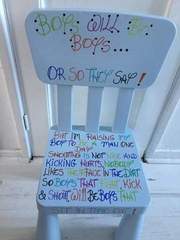 BOYS WILL BE
BOYS...
OR SO THEY SAY!
BUT I'M RAISING MY
BOY TO BE A MAN ONE
DAY
SHOOTING IS NOT NICE AND
KICKING HURTS, NOBODY
LIKES THE FACE IN THE DIRT
SO BOYS THAT FIGHT, KICK
& SHOUT, WILL BE BOYS THAT